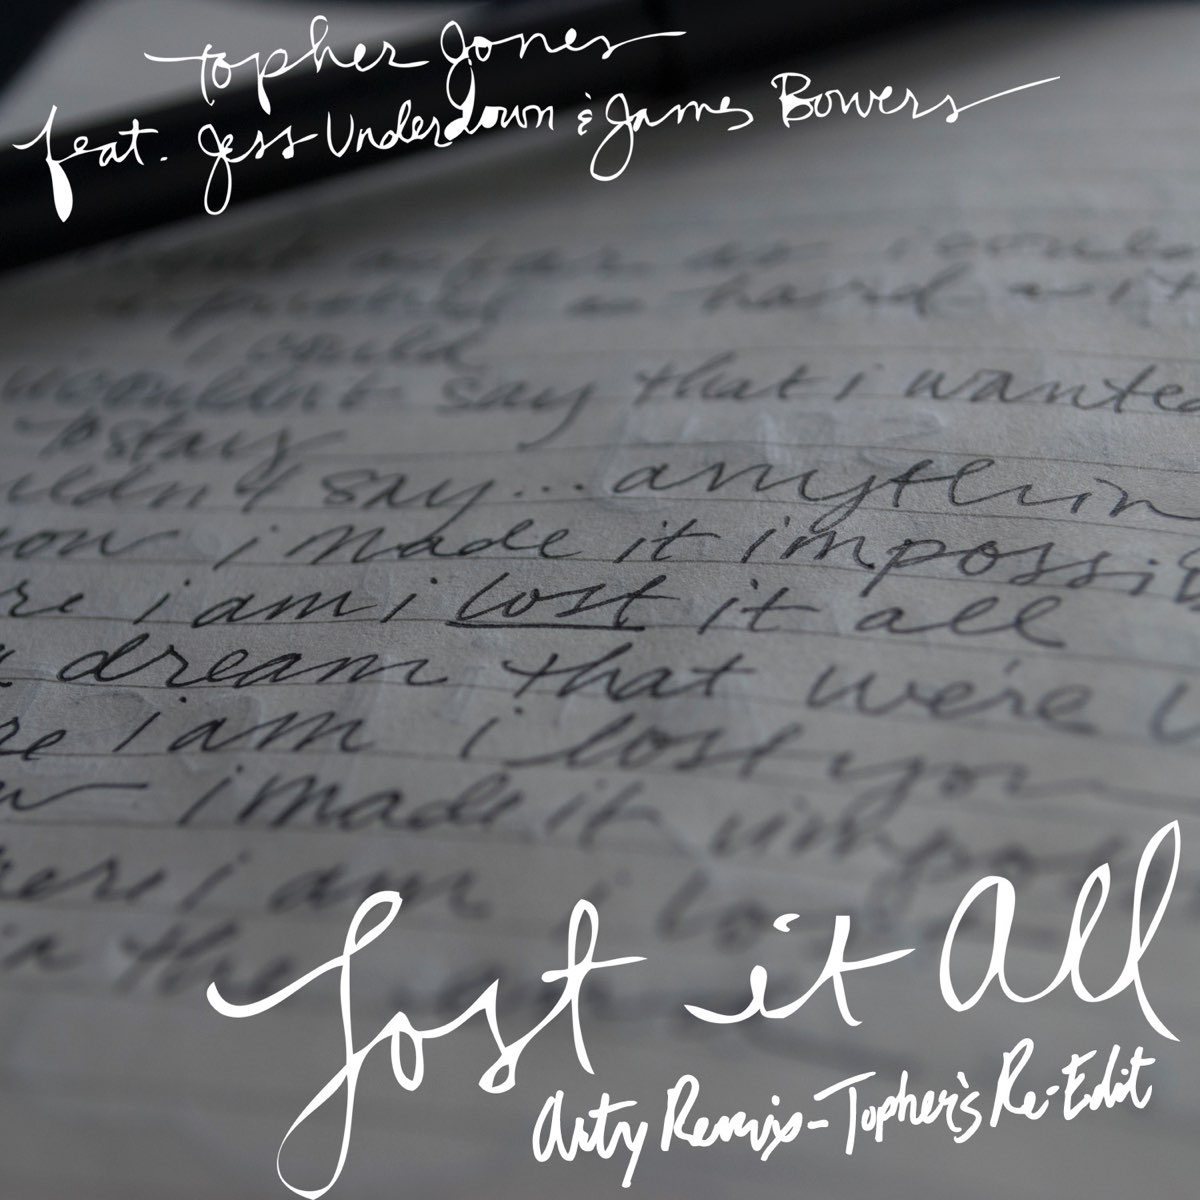 Topher Jones
feat. Jess Underdown & James Bowers
hard
i could
wouldn't say that i wanted
to stay
say... anythin
i made it impossib
i am i lost it all
dream that we're
i am i lost you
i made it impos
i am i los
in the
Lost it All
Arty Remix - Topher's Re-Edit